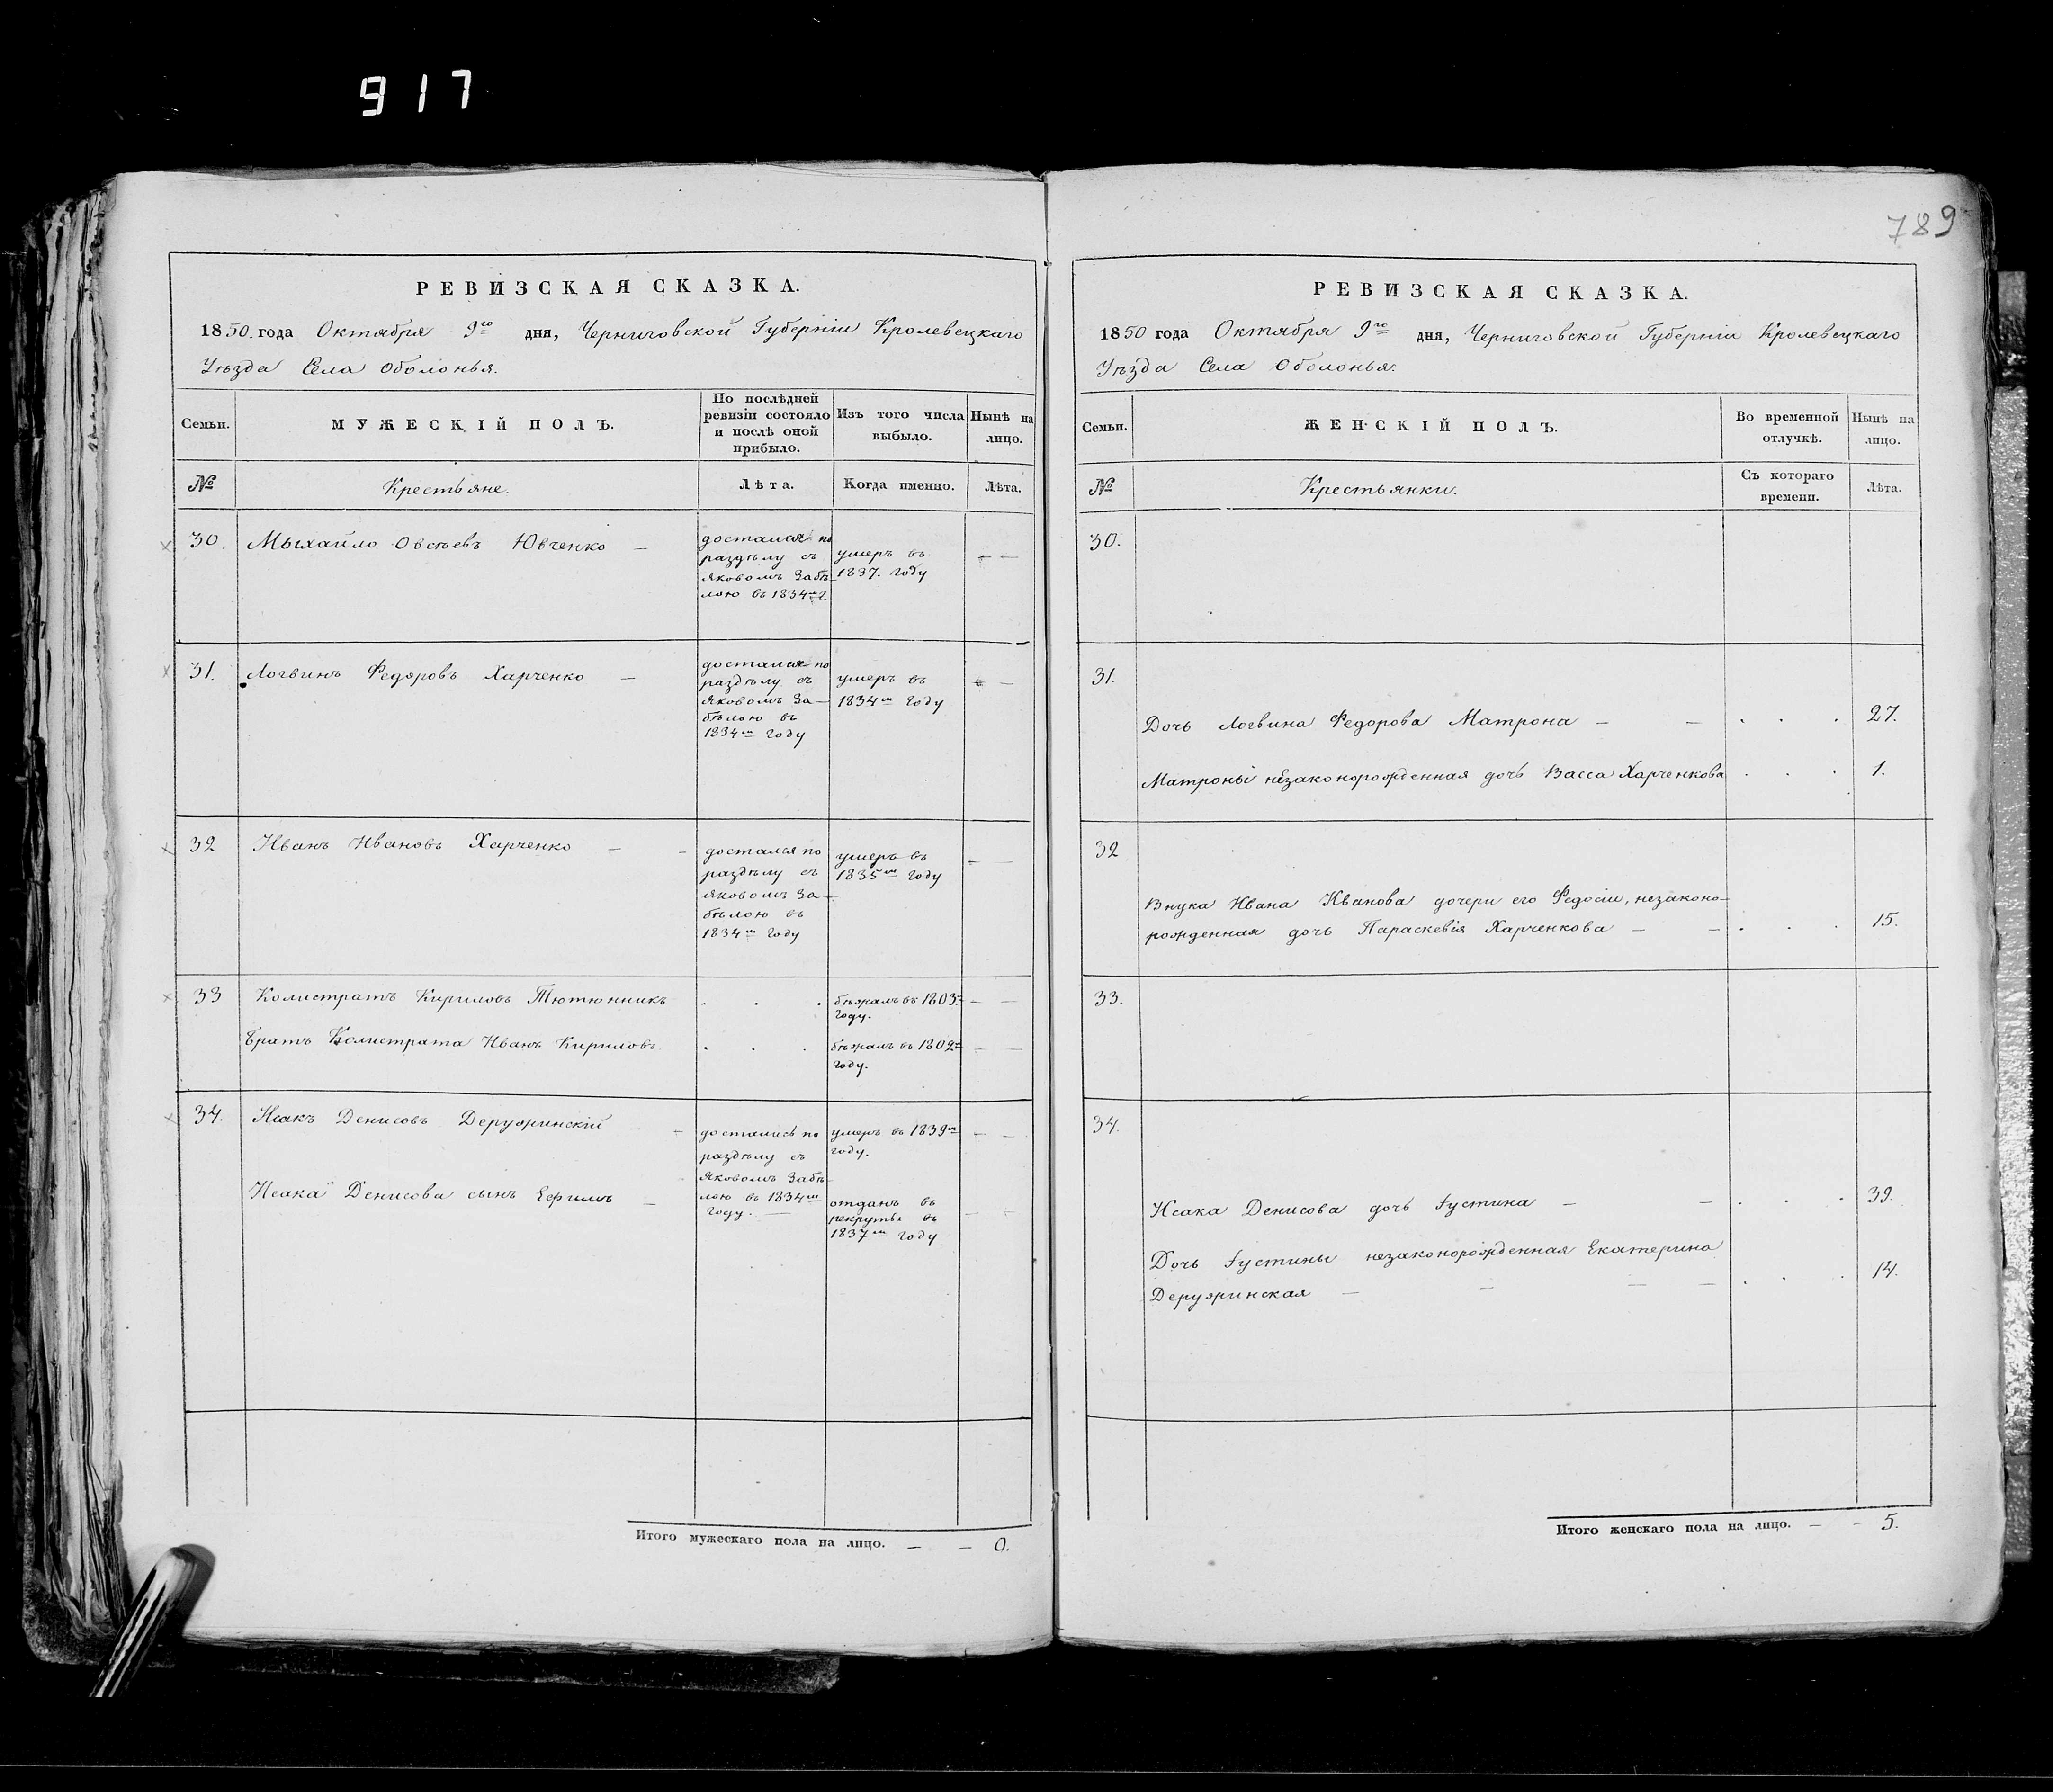 917
789
РЕВИЗСКАЯ СКАЗКА.
1850. года Октября 9го дня, Черниговской Губерніи Кролевецкаго
Уѣзда Села Оболонья.
Семьи.
МУЖЕСКІЙ ПОЛЪ.
По послѣдней
ревизіи состояло
и послѣ оной
прибыло.
Изъ того числа
выбыло.
Нынѣ на
лицо.
№
Крестьяне.
Лѣта.
Когда именно.
Лѣта.
30. Мыхайло Овсѣевъ Ювченко —
достался по
раздѣлу съ
Яковомъ Забѣ-
лою въ 1834мъ г.
умеръ въ
1837. году
— —
31. Логвинъ Федоровъ Харченко —
достался по
раздѣлу съ
Яковомъ За-
бѣлою въ
1834мъ году
умеръ въ
1834мъ году
— —
32 Иванъ Ивановъ Харченко — -
достался по
раздѣлу съ
Яковомъ За-
бѣлою въ
1834мъ году
умеръ въ
1835мъ году
— —
33 Колистратъ Кириловъ Тютюнникъ . . .
бѣжалъ въ 1803мъ
году.
— —
Братъ Колистрата Иванъ Кириловъ . . .
бѣжалъ въ 1802мъ
году.
— —
34. Исакъ Денисовъ Деружинскій — -
достались по
раздѣлу съ
Яковомъ Забѣ-
лою въ 1834мъ
году. —
умеръ въ 1839мъ
году.
— —
Исака Денисова сынъ Ефимъ —
отданъ въ
рекруты въ
1837мъ году
— —
Итого мужескаго пола на лицо. — — 0.
РЕВИЗСКАЯ СКАЗКА.
1850 года Октября 9го дня, Черниговской Губерніи Кролевецкаго
Уѣзда Села Оболонья.
Семьи.
ЖЕНСКІЙ ПОЛЪ.
Во временной
отлучкѣ.
Нынѣ на
лицо.
№
Крестьянки.
Съ котораго
времени.
Лѣта.
30.
31.
Дочь Логвина Федорова Матрона — — . . . 27.
Матроны незаконорожденная дочь Васса Харченкова . . . 1.
32
Внука Ивана Иванова дочери его Федосіи, незаконо-
рожденная дочь Параскевія Харченкова — — . . . 15.
33.
34.
Исака Денисова дочь Іустина — — . . . 39.
Дочь Іустины незаконорожденная Екатерина
Деружинская — — — — . . . 14.
Итого женскаго пола на лицо. — - 5.